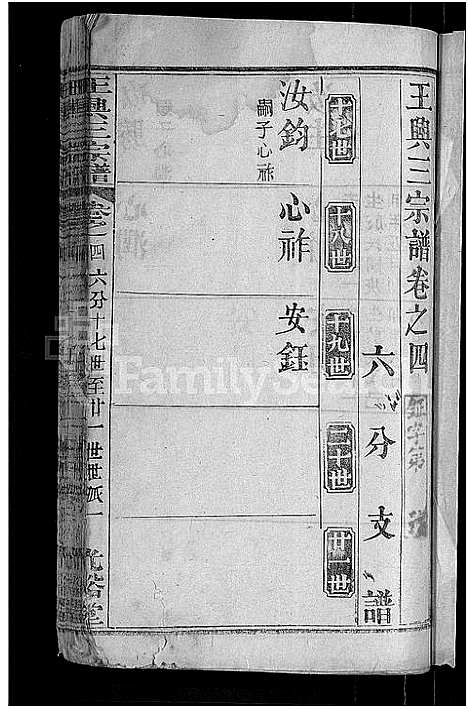 王興三宗譜卷之四
六分支譜
十七世
十八世
十九世
二十世
廿一世
汝鈞
嗣子心祚
心祚
安鈺
王興三宗譜 卷之四 六分十七世至廿一世世派一
FamilySearch